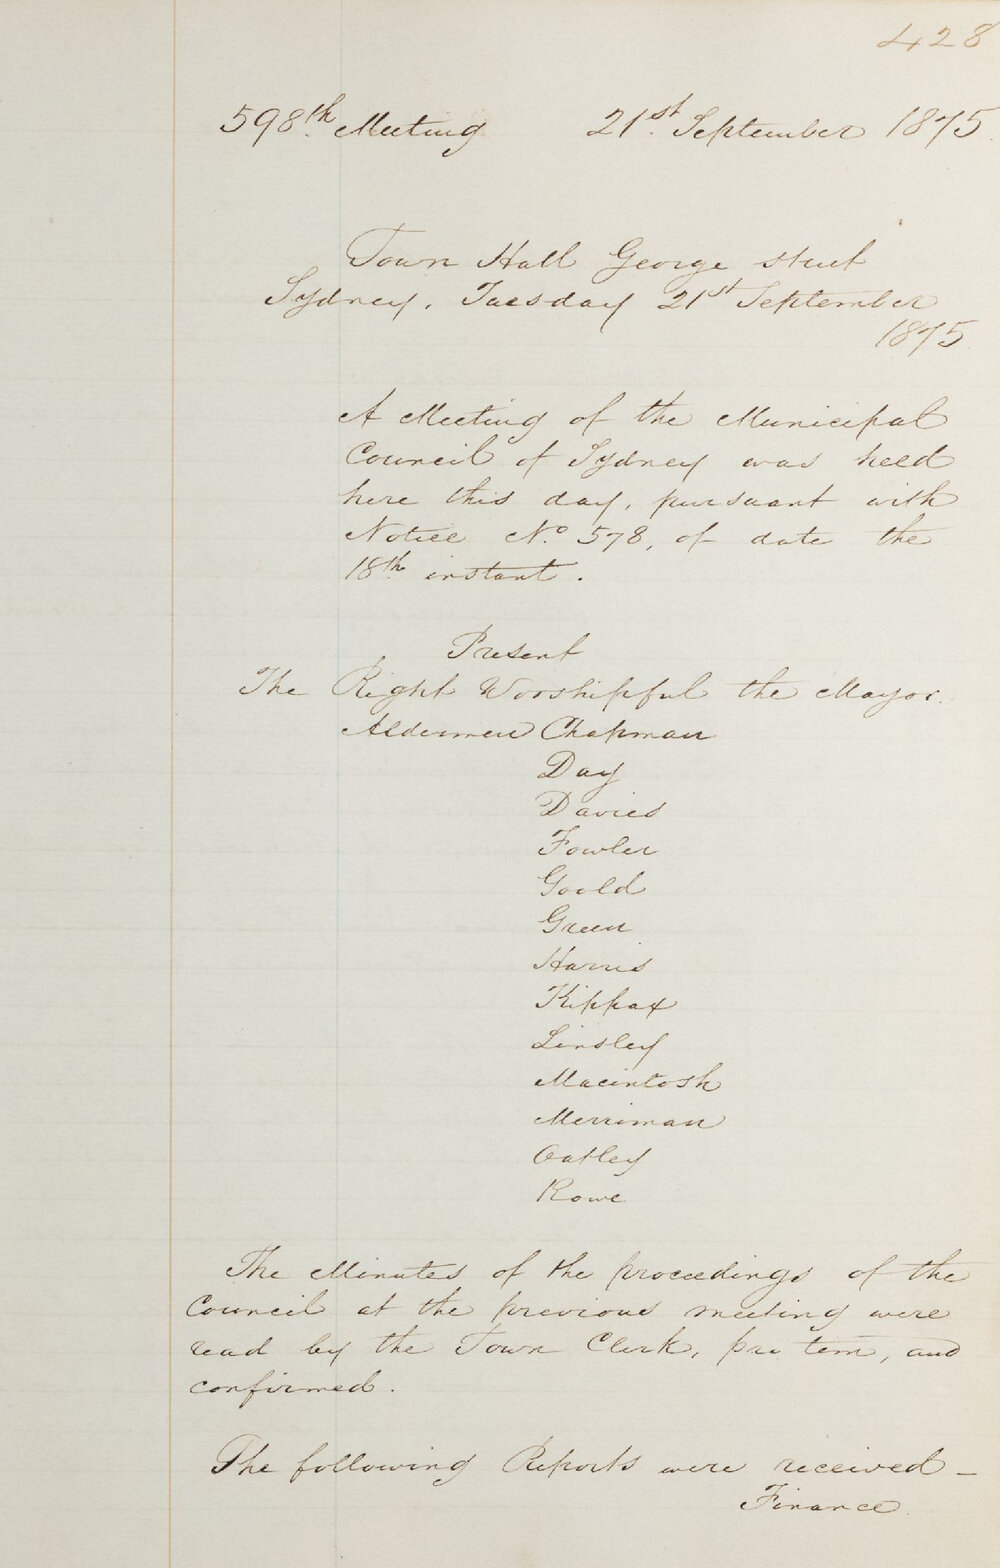 428
598th. Meeting 21st. September 1875.
Town Hall George street
Sydney, Tuesday 21st September
1875
A Meeting of the Municipal
Council of Sydney was held
here this day, pursuant with
Notice No. 578, of date the
18th. instant.
Present
The Right Worshipful the Mayor.
Aldermen Chapman
Day
Davies
Fowler
Goold
Green
Harris
Kippax
Linsley
Macintosh
Merriman
Oatley
Rowe
The Minutes of the proceedings of the
Council at the previous meeting were
read by the Town Clerk, pro tem, and
confirmed.
The following Reports were received —
Finance